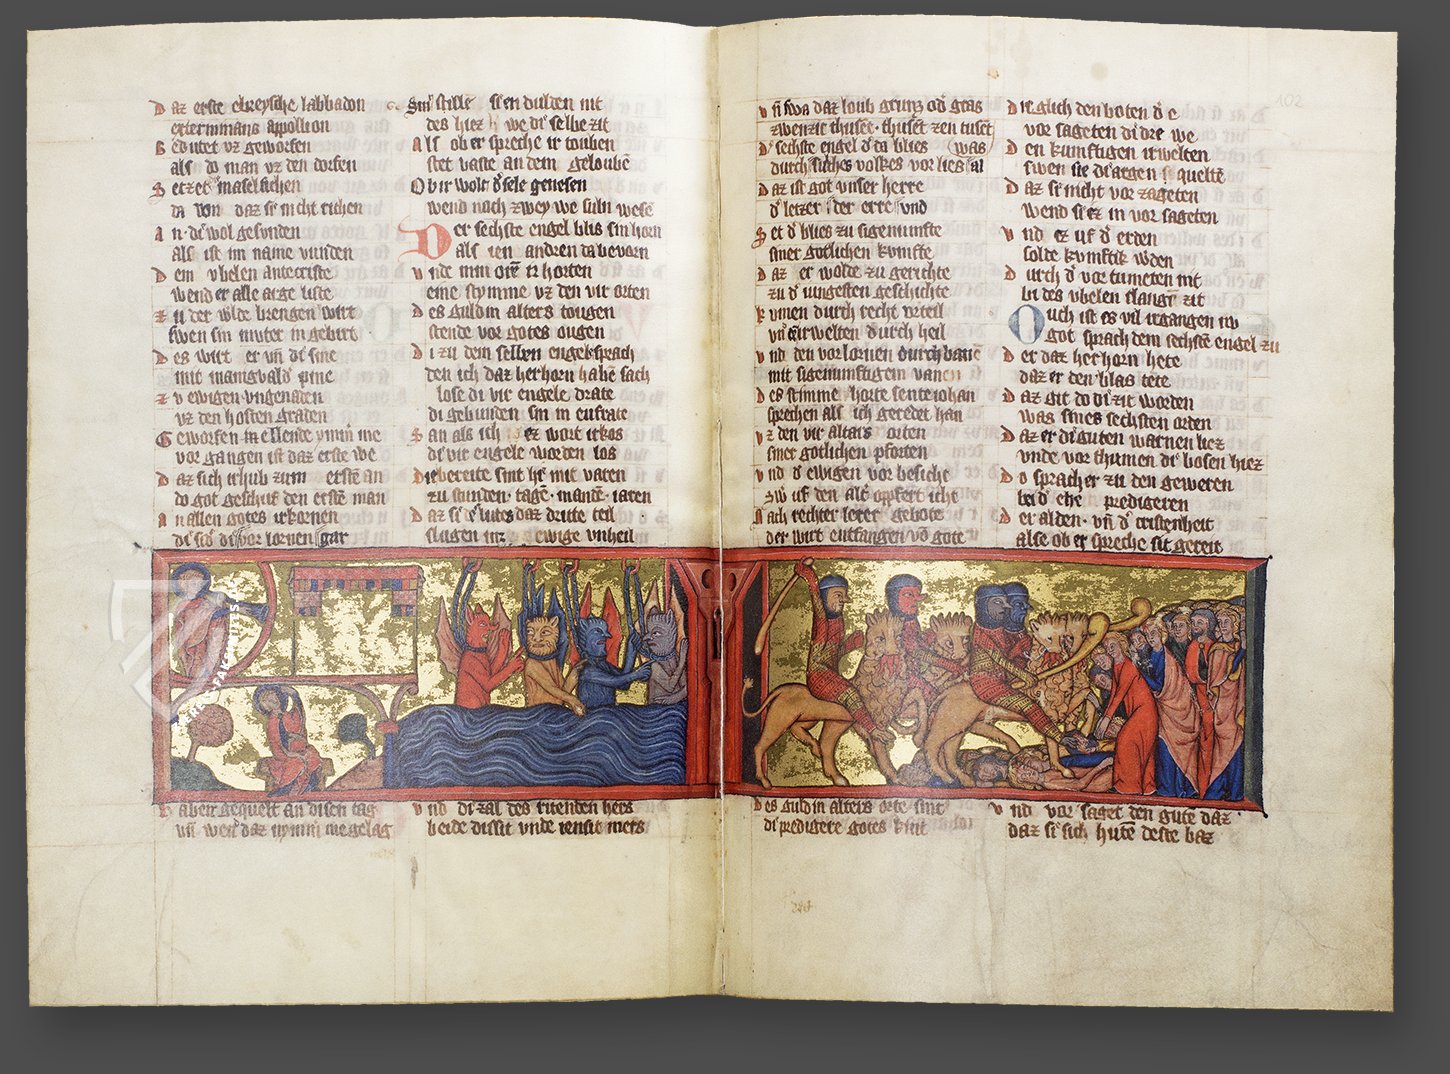 Daz erste ebreysche labbadon
exterminans appollion
Bedutet vz geworfen
als do man vz den dorfen
Setzet maselsichen
da von daz si nicht richen
An di wol gesunden
Als ist im name vunden
Dem vbelen antecriste
wend er alle arge liste
zu der werlde brengen wirt
swen sin muter in gebirt
Des wirt er vn di sine
mit manigvald pine
zv ewigen vngenaden
vz den hosten graden
Geworfen in ellende ymmer me
vor gangen ist daz erste we
Daz sich irhub zum ersten an
do got geschuf den ersten man
An allen gotes irkornen
di sid di vor lornen gar
aber gequelt an disen tag
vn wen daz nymmer megelag
Sin stille sien dulden nit
des hiez we di selbe zit
Als ob er spreche ir touben
stet vaste an dem gelouben
Ob ir wolt d sele genesen
wend noch zwey we suln wesen
Der sechste engel blis sin horn
als ien andren da bevorn
vnde min oren ir horten
eine stymme vz den vir orten
Des guldin alters tougen
stende vor gotes ougen
Di zu dem selben engel sprach
den ich daz her horn haben sach
lose di vir engele drate
di gebunden sin in eufrate
San als ich ez wort irkos
di vir engele worden los
Die bereite sint her mit varen
zu stunden tage manden iaren
Daz si d lutes daz dritte teil
slugen in ewige vnheil
vnd di zal des ritenden hers
beide dissit vnde iensit mers
102
vn swa daz loub grunz od gras
zwenzic thusent thusent zen tusent
D sechste engel d da blies was
durch suches volkes vor lies al
Daz ist got vnser herre
d letzer der erre vnd
Set d blies zu sigenunfte
siner gotlichen kvmfte
Daz er wolde zu gerichte
zu d iungesten geschichte
kvmen durch recht vrteil
vn irwelten durch heil
vnd den vorlornen durch banen
mit sigenunftigem vanen
Des stimme horte sente iohan
sprechen als ich geredet han
vz den vir altars orten
siner gotlichen pforten
vnd d ewigen vor besicht
sw uf den alter oppfert icht
Nach rechter lerer gebote
der wirt entfangen von gote
Des guldin alters orte sint
di predigere gotes kint
Die glich den boten d e
vor sageten di dre we
Den kunftigen irwelten
swen sie di argen quelten
Daz si nicht vor zageten
wend si ez in vor sageten
vnd ez uf d erden
solde kvmftik werden
Durch d vor tumeten nit
bi des vbelen slangen zit
Ouch ist es vil irgangen iw
got sprach dem sechsten engel zu
Der daz her horn hete
daz er den blas tete
Daz git do di zit worden
was sines sechsten orden
Daz er di guten warnen hiez
vnde vor thumen di bosen hiez
Do sprach er zu den geweren
beid ehe predigeren
Der alden vn d cristenheit
alse ob er spreche sit gereit
vnd vor saget den guten daz
daz si sich huten deste baz